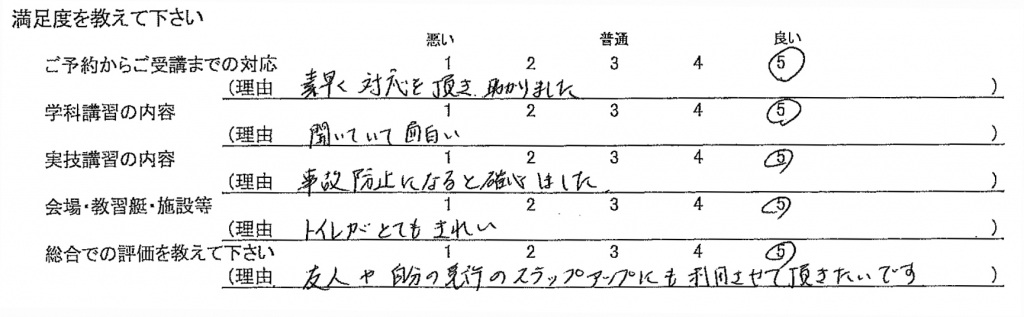 満足度を教えて下さい
悪い 普通 良い
ご予約からご受講までの対応 1 2 3 4 5
(理由 素早く対応を頂き助かりました )
学科講習の内容 1 2 3 4 5
(理由 聞いていて面白い )
実技講習の内容 1 2 3 4 5
(理由 事故防止になると確信しました )
会場・教習艇・施設等 1 2 3 4 5
(理由 トイレがとてもきれい )
総合での評価を教えて下さい 1 2 3 4 5
(理由 友人や自分の のステップアップにも利用させて頂きたいです )